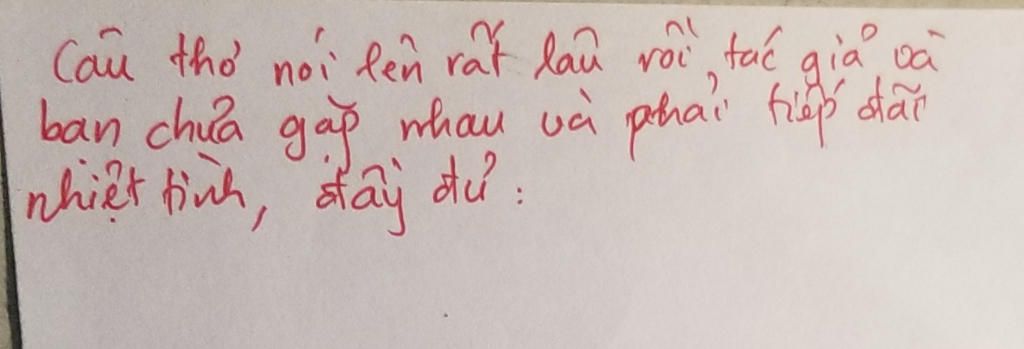 Câu thơ nói lên rất lâu rồi, tác giả và
bạn chưa gặp nhau và phải tiếp đãi
nhiệt tình, đầy đủ :